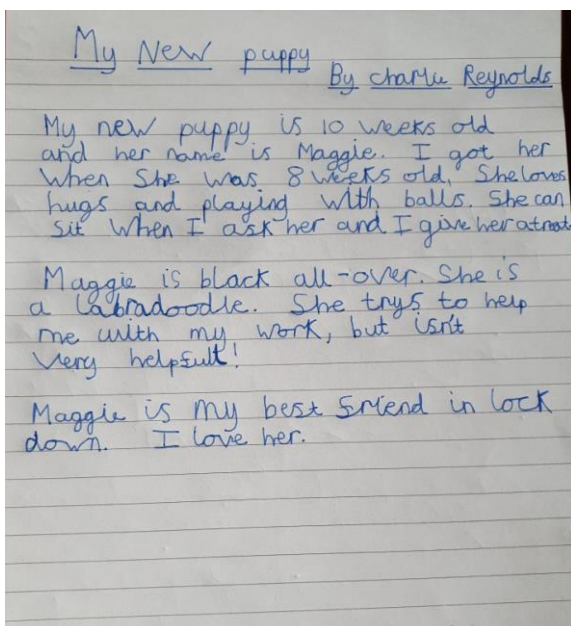 My New puppy
By Charlie Reynolds
My new puppy is 10 weeks old
and her name is Maggie. I got her
when She was 8 weeks old. She loves
hugs and playing with balls. She can
sit when I ask her and I give her a treat
Maggie is black all-over. She is
a labradoodle. She trys to help
me with my work, but isn't
very helpfull!
Maggie is my best friend in lock
down. I love her.